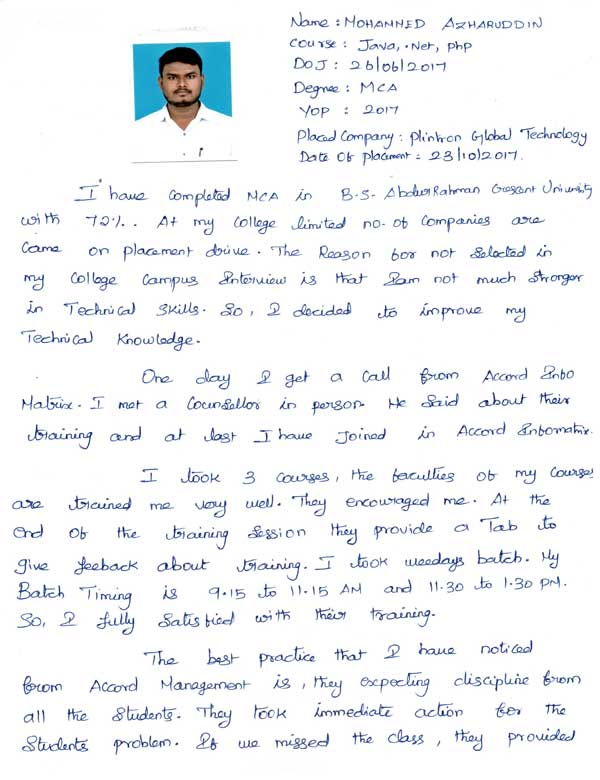 Name : MOHAMMED AZHARUDDIN
Course : Java, .Net, php
DOJ : 26/06/2017
Degree : MCA
YOP : 2017
Placed Company : Plintron Global Technology
Date Of Placement : 23/10/2017.
I have completed MCA in B.S. Abdur Rahman Crescent University
with 72%. At my College limited no. of Companies are
Came on placement drive. The Reason for not Selected in
my College Campus Interview is that Iam not much Stronger
in Technical Skills. So, I decided to improve my
Technical Knowledge.
One day I get a Call from Accord Info
Matrix. I met a Counsellor in person. He Said about their
training and at last I have Joined in Accord Infomatrix.
I took 3 courses, the faculties of my Courses
are trained me very well. They encouraged me. At the
end of the training Session they provide a Tab to
give feeback about training. I took weedays batch. My
Batch Timing is 9.15 to 11.15 AM and 11.30 to 1.30 PM.
So, I fully Satisfied with their training.
The best practice that I have noticed
from Accord Management is, they expecting discipline from
all the Students. They took immediate action for the
Students problem. If we missed the class, they provided